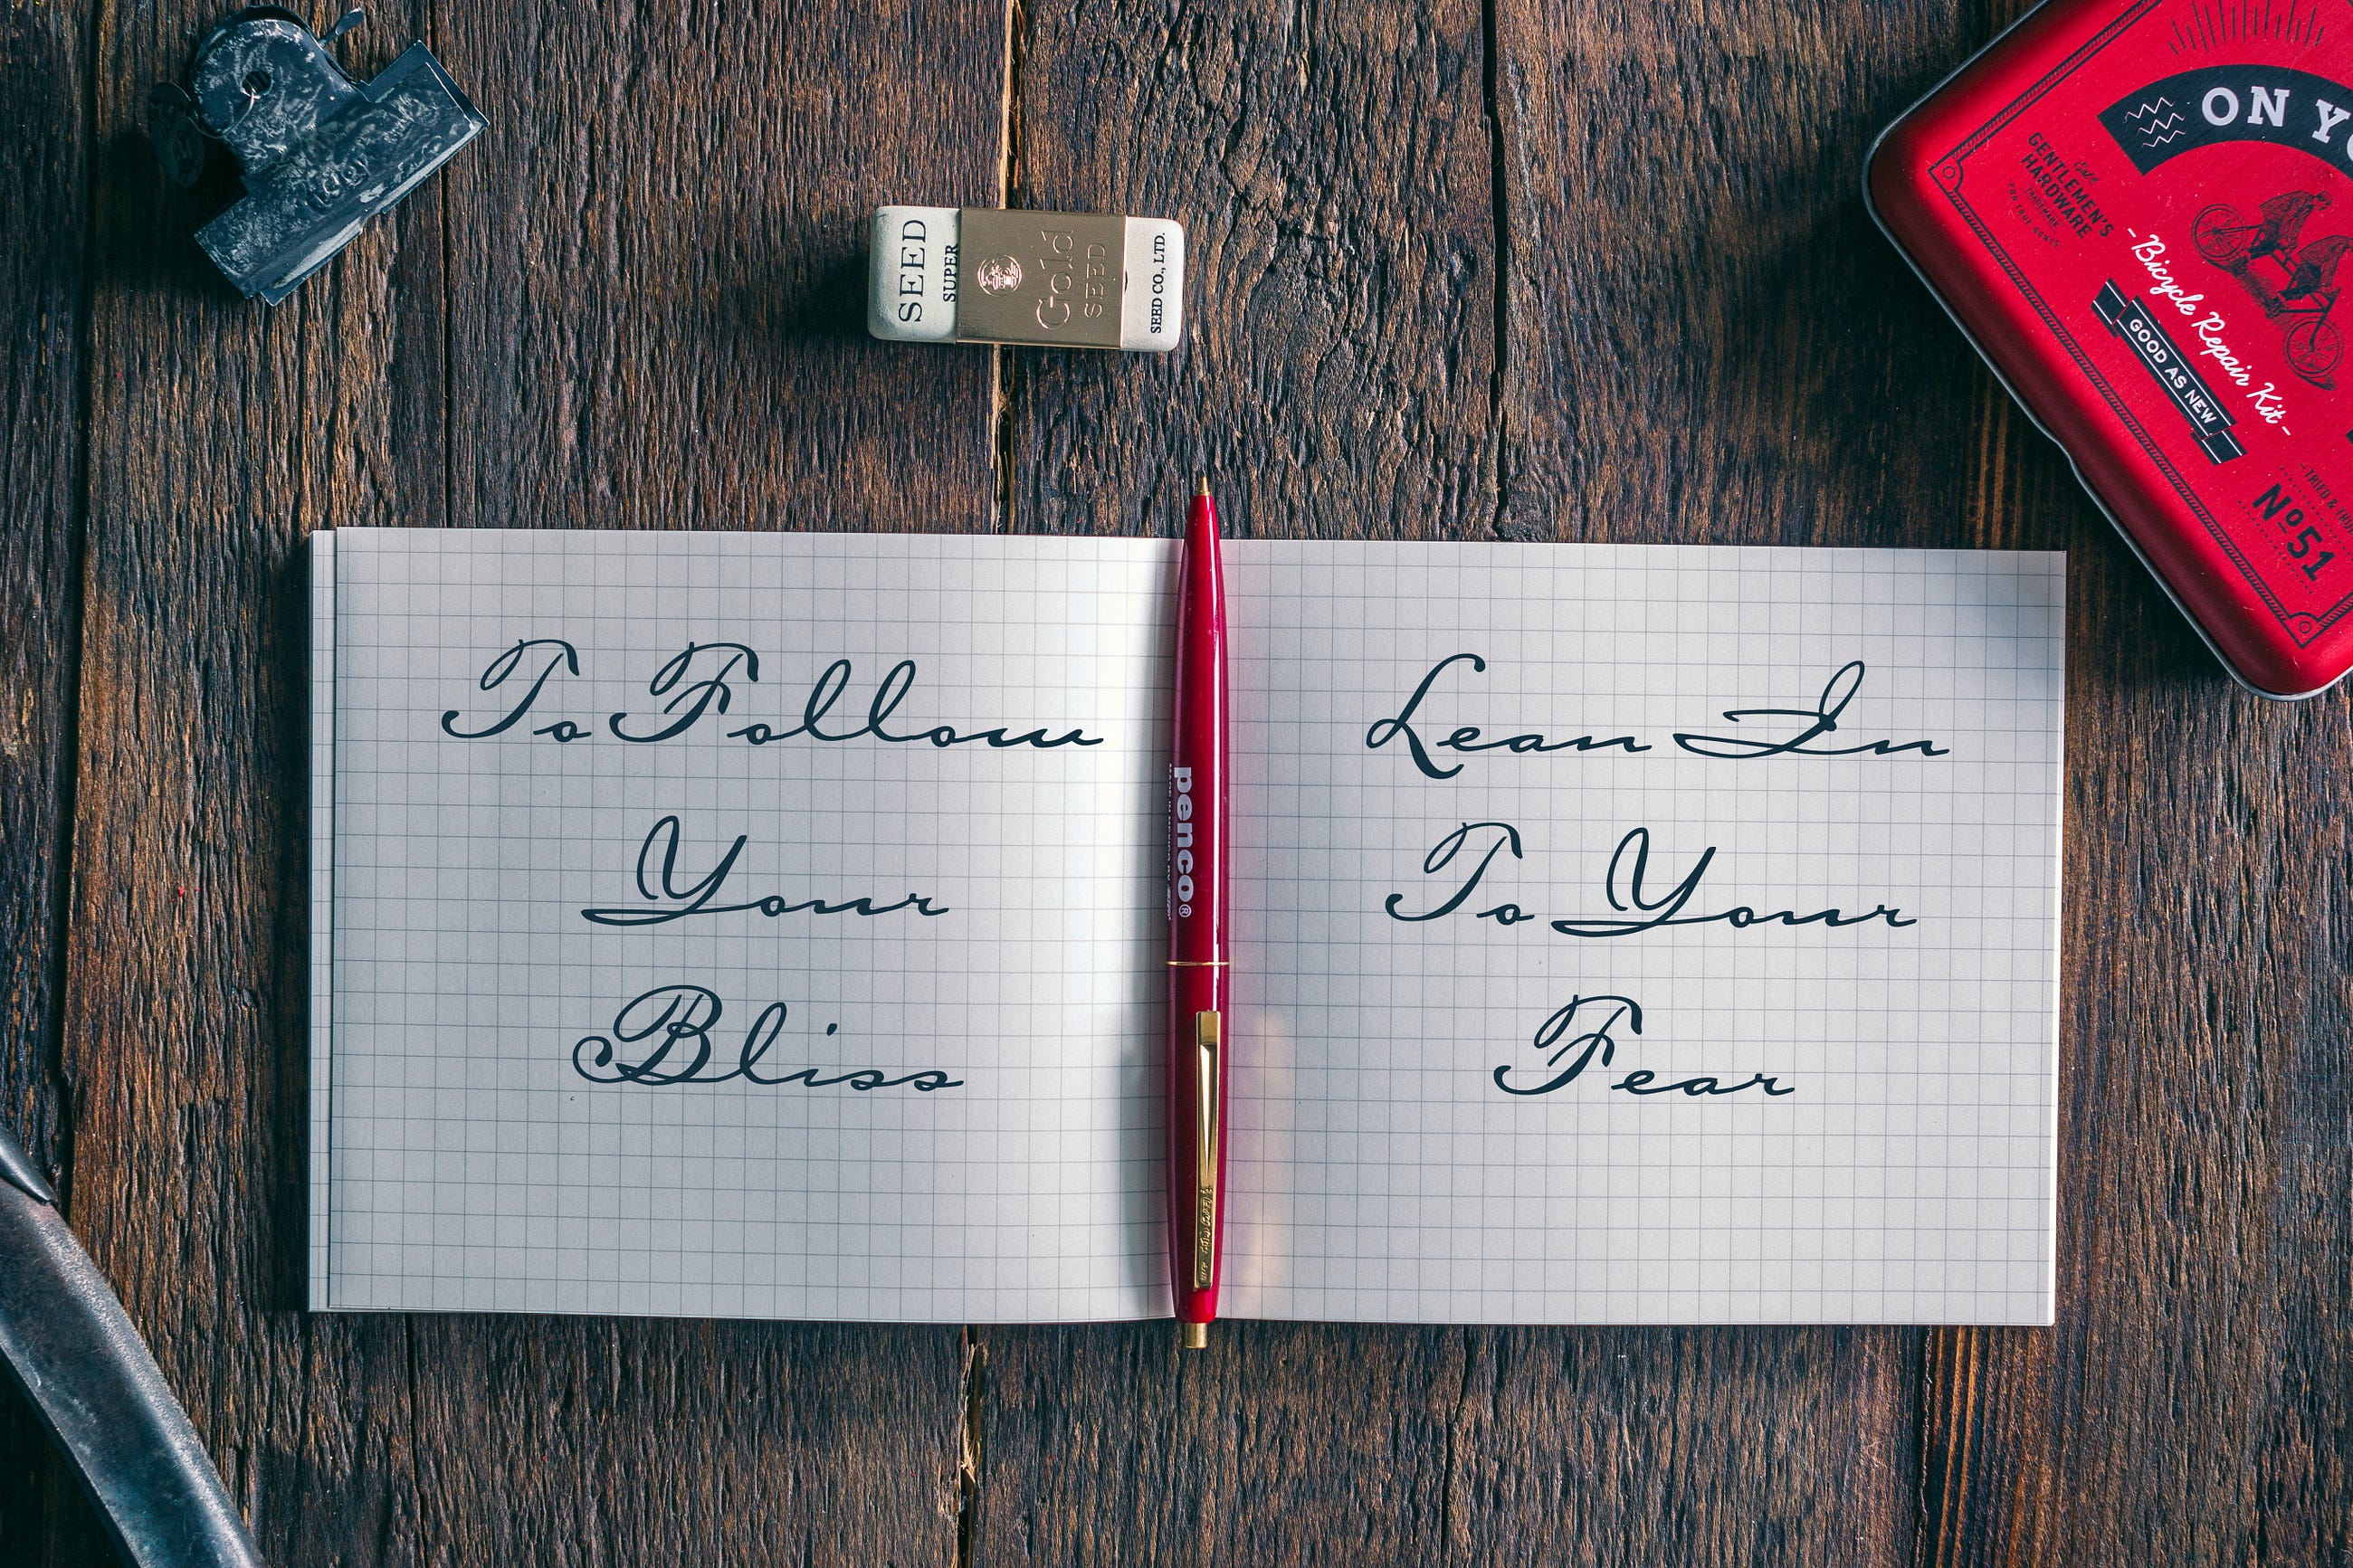 SEED
SUPER
Gold
SEED
SEED CO., LTD.
ON YO
GENTLEMEN'S
HARDWARE
-Bicycle Repair Kit-
GOOD AS NEW
-TRIED &
Nº51
To Follow
Your
Bliss
penco®
Lean In
To Your
Fear